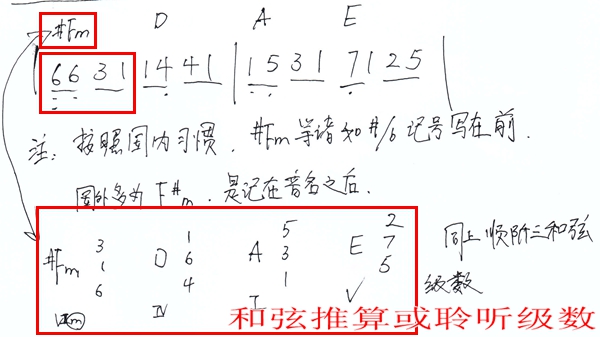 #Fm D A E
| 66 31 14 41 | 15 31 71 25 |
注: 按照国内习惯, #Fm 等诸如 #/b 记号写在前.
国外多为 F#m, 是记在音名之后.
#Fm 3 1 6 D 1 6 4 A 5 3 1 E 2 7 5 同上顺阶三和弦
级数
VIm IV I V
和弦推算或聆听级数